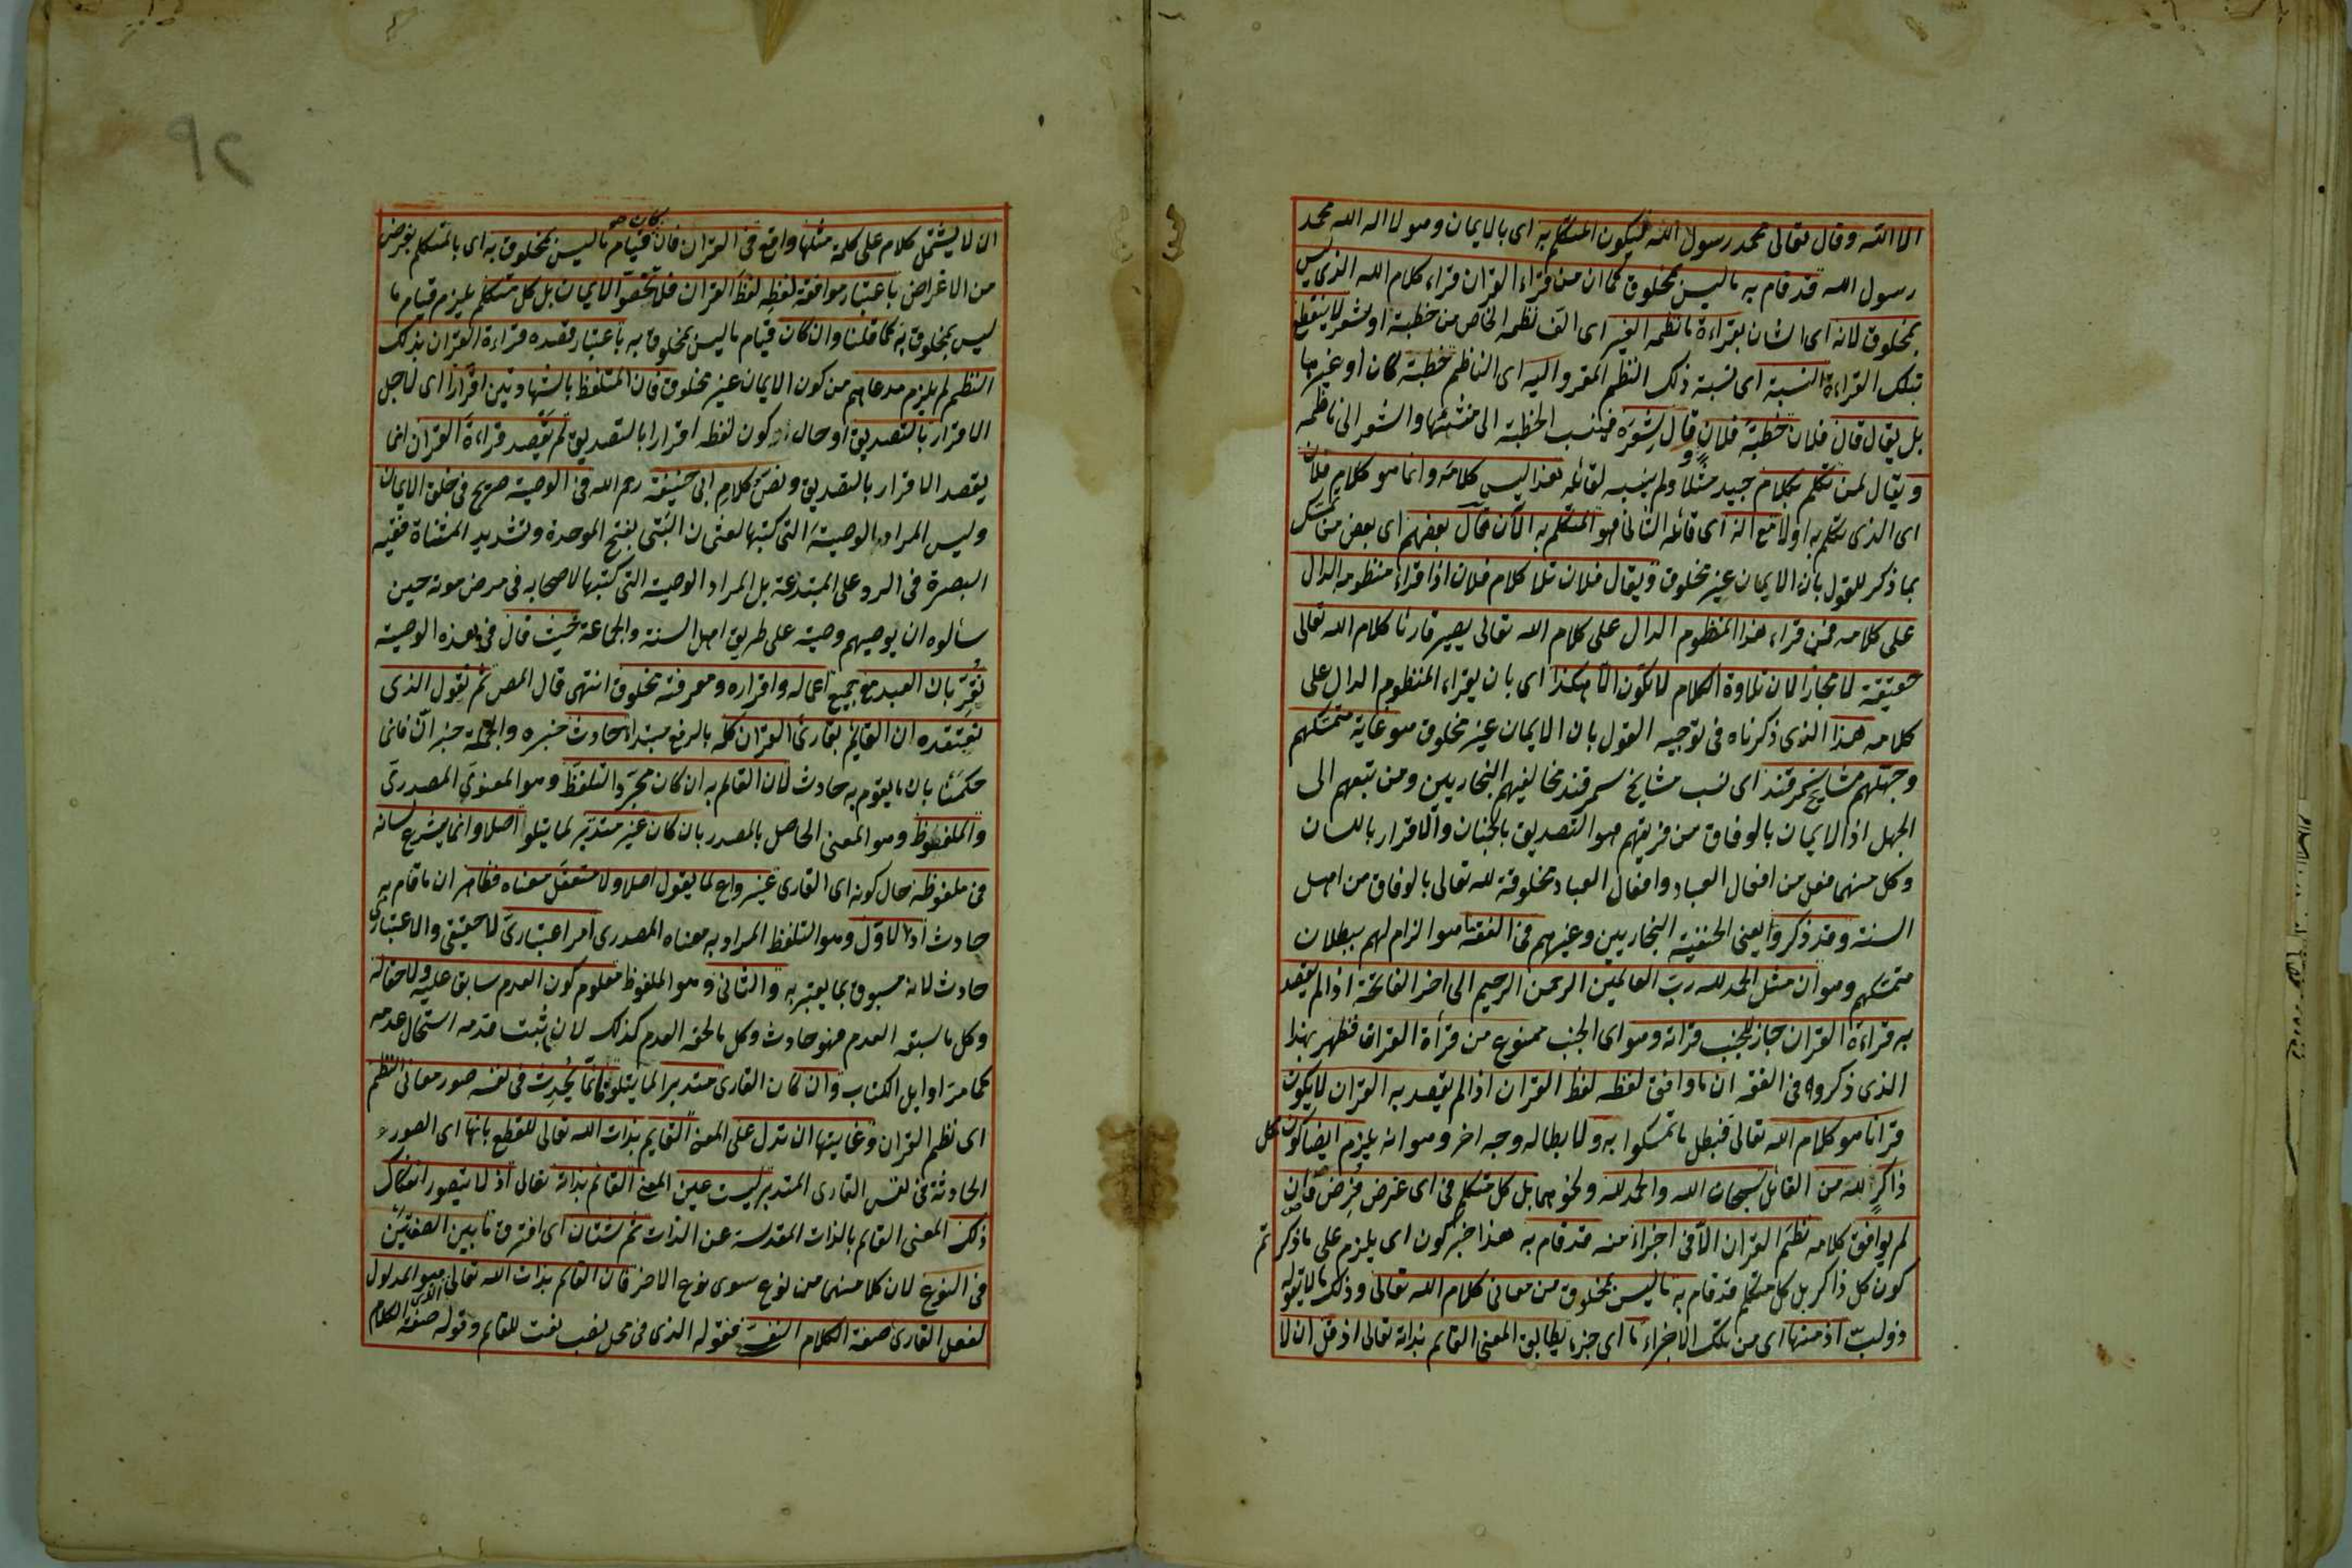 الا الله وقال تعالى محمد رسول الله فيكون المتكلم به اى بالايمان وهو لا اله الا الله محمد
رسول الله قد قام به ما ليس بمخلوق كما ان من قراء القران قراء كلام الله الذى ليس
بمخلوق لانه اى الشان بقراءة ما نظمه الغير اى الف نظمه الخاص من خطبة او شعر لا ينقطع
بتلك القراءة النسبة اى نسبة ذلك النظم المقرو اليه اى الناظم خطبة كان او غيرها
بل يقال قال فلان خطبة فلان وقال شعره فينسب الخطبة الى منشئها والشعر الى ناظمه
ويقال لمن تكلم بكلام جيد مثلا ولم ينسبه لقائله هذا ليس كلامه وانما هو كلام فلان
اى الذى تكلم به اولا مع انه اى قائله الثانى هو المتكلم به الان قال بعضهم اى بعض من تمسك
بما ذكر للقول بان الايمان غير مخلوق ويقال فلان تلا كلام فلان اذا قراء منظومه الدال
على كلامه فمن قراء هذا المنظوم الدال على كلام الله تعالى يصير قارئا كلام الله تعالى
حقيقة لا مجازا لان تلاوة الكلام لا تكون الا هكذا اى بان يقراء المنظوم الدال على
كلامه هذا الذى ذكرناه فى توجيه القول بان الايمان غير مخلوق هو غاية متمسكهم
وجهلهم مشايخ سمرقند اى نسب مشايخ سمرقند مخالفيهم البخاريين ومن تبعهم الى
الجهل اذ الايمان بالوفاق من فريقهم هو التصديق بالجنان والاقرار باللسان
وكل منهما فعل من افعال العباد وافعال العباد مخلوقة لله تعالى بالوفاق من اهل
السنة وقد ذكروا يعنى الحنفية البخاريين وغيرهم فى الفقه ما هو الزام لهم ببطلان
متمسكهم وهو ان مثل الحمد لله رب العالمين الرحمن الرحيم الى اخر الفاتحة اذا لم يقصد
به قراءة القران جاز للجنب قراته وهو اى الجنب ممنوع من قرأة القران فظهر بهذا
الذى ذكروه فى الفقه ان ما وافق لفظه لفظ القران اذا لم يقصد به القران لا يكون
قرانا هو كلام الله تعالى فبطل ما تمسكوا به ولابطاله وجه اخر وهو انه يلزم ايضا كون كل
ذاكر لله من القائل سبحان الله والحمد لله ونحوهما بل كل متكلم فى اى غرض فرض وان
لم يوافق كلامه نظم القران الا فى اجزاء منه قد قام به هذا خبر كون اى يلزم على ما ذكرتم
كون كل ذاكر بل كل متكلم قد قام به ما ليس بمخلوق من معانى كلام الله تعالى وذلك ما لا يقوله
ذو لب اذ منها اى من تلك الاجزاء ما اى جزء يطابق المعنى القايم بذاته تعالى اذ قل ان لا
ان لا يشتمل كلام على كلمة مثلها واقع فى القران فان كان قيام ما ليس بمخلوق به اى بالمتكلم بغرض
من الاغراض باعتبار موافقة لفظه لفظ القران فلا تخصوا الايمان بل كل متكلم يلزم قيام ما
ليس بمخلوق به كما قلنا وان كان قيام ما ليس بمخلوق به باعتبار قصده قراءة القران بذلك
النظم لم يلزم مدعاهم من كون الايمان غير مخلوق فان المتلفظ بالشهادتين اقرارا اى لاجل
الاقرار بالتصديق او حال كون لفظه اقرارا بالتصديق لم يقصد قراءة القران انما
يقصد الاقرار بالتصديق ونص كلام ابى حنيفة رحم الله فى الوصية صريح فى خلق الايمان
وليس المراد بالوصية التى كتبها لعثمان البتى بفتح الموحدة وتشديد المثناة فقيه
البصرة فى الرد على المبتدعة بل المراد الوصية التى كتبها لاصحابه فى مرض موته حين
سألوه ان يوصيهم وصية على طريق اهل السنة والجماعة حيث قال فى هذه الوصية
نقر بان العبد مع جميع اعماله واقراره ومعرفته مخلوق انتهى قال المص ثم نقول الذى
نعتقده ان القايم بقارئ القران كله بالرفع مبتدا حادث خبره والجملة خبر ان فانى
حكمنا بان ما يقوم به حادث لان القايم به ان كان مجرد التلفظ وهو المعنوى المصدرى
والملفوظ وهو المعنى الحاصل بالمصدر بان كان غير متدبر لما يتلوا اصلا وانما يشرع لسانه
فى ملفوظه حال كونه اى القارى غير واع لما يقول اصلا ولا متعقل معناه فظاهر ان ما قام به
حادث اذ الاول وهو التلفظ المراد به معناه المصدرى امر اعتبارى لا حقيقى والاعتبارى
حادث لانه مسبوق بما يعتبر به والثانى وهو الملفوظ معلوم كون العدم سابق عليه ولاحقا له
وكل ما سبقه العدم فهو حادث وكل ما لحقه العدم كذلك لان ما ثبت قدمه استحال عدمه
كما مر اوايل الكتاب وان كان القارى متدبرا لما يتلو فانما يحدث فى نفسه صور معانى النظم
اى نظم القران وغايتها ان تدل على المعنى القايم بذات الله تعالى للقطع بانها اى الصور
الحادثة فى نفس القارى المتدبر ليست عين المعنى القائم بذاته تعالى اذ لا يتصور انفكاك
ذلك المعنى القايم بالذات المقدسة عن الذات ثم شتان اى افترق ما بين الصفتين
فى النوع لان كلا منهما من نوع سوى نوع الاخر فان القايم بذات الله تعالى هو المدلول
لفعل القارى صفة الكلام النفسى فقوله الذى فى محل نصب نعت للقايم وقوله صفة الكلام
٩٢